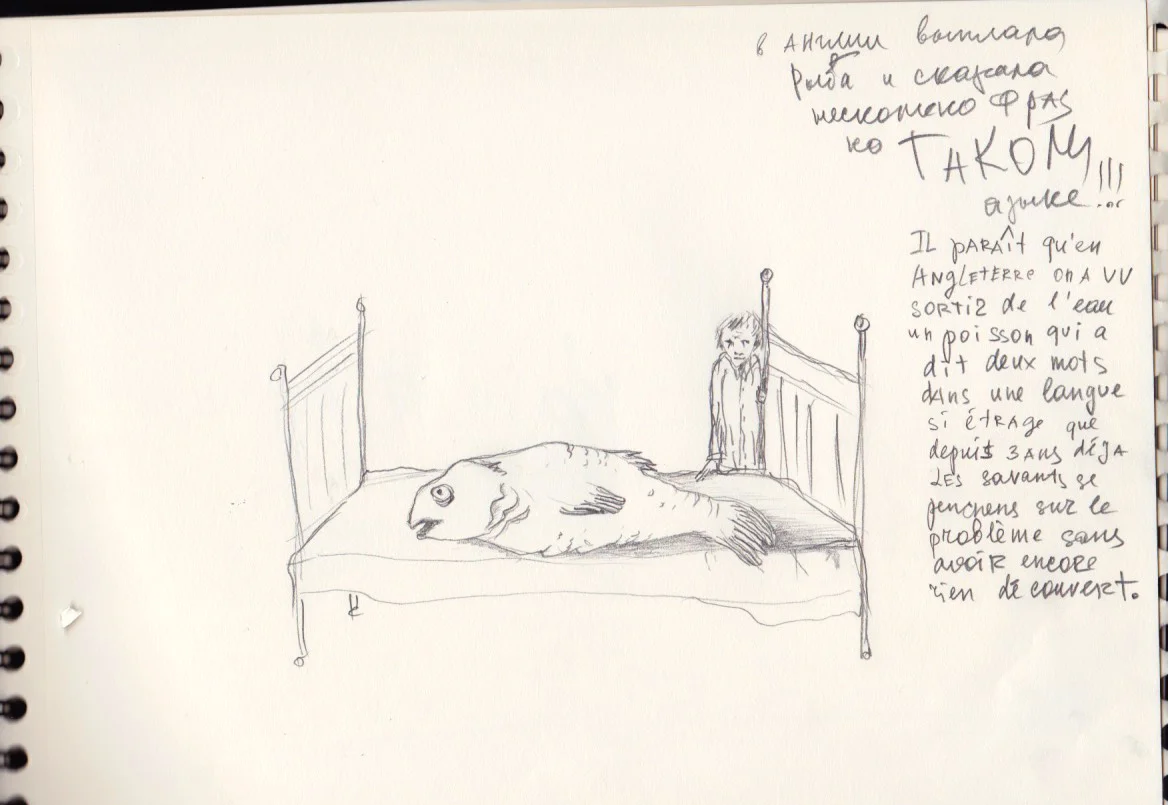 в Англии выплала
Рыба и сказала
несколько фраз
на ТАКОМ
языке!!!
IL paraît qu'en
Angleterre on a vu
sortiz de l'eau
un poisson qui a
dit deux mots
dans une langue
si étrage que
depuis 3 ans déja
les savants se
penchens sur le
problème sans
avoir encore
rien découvert.